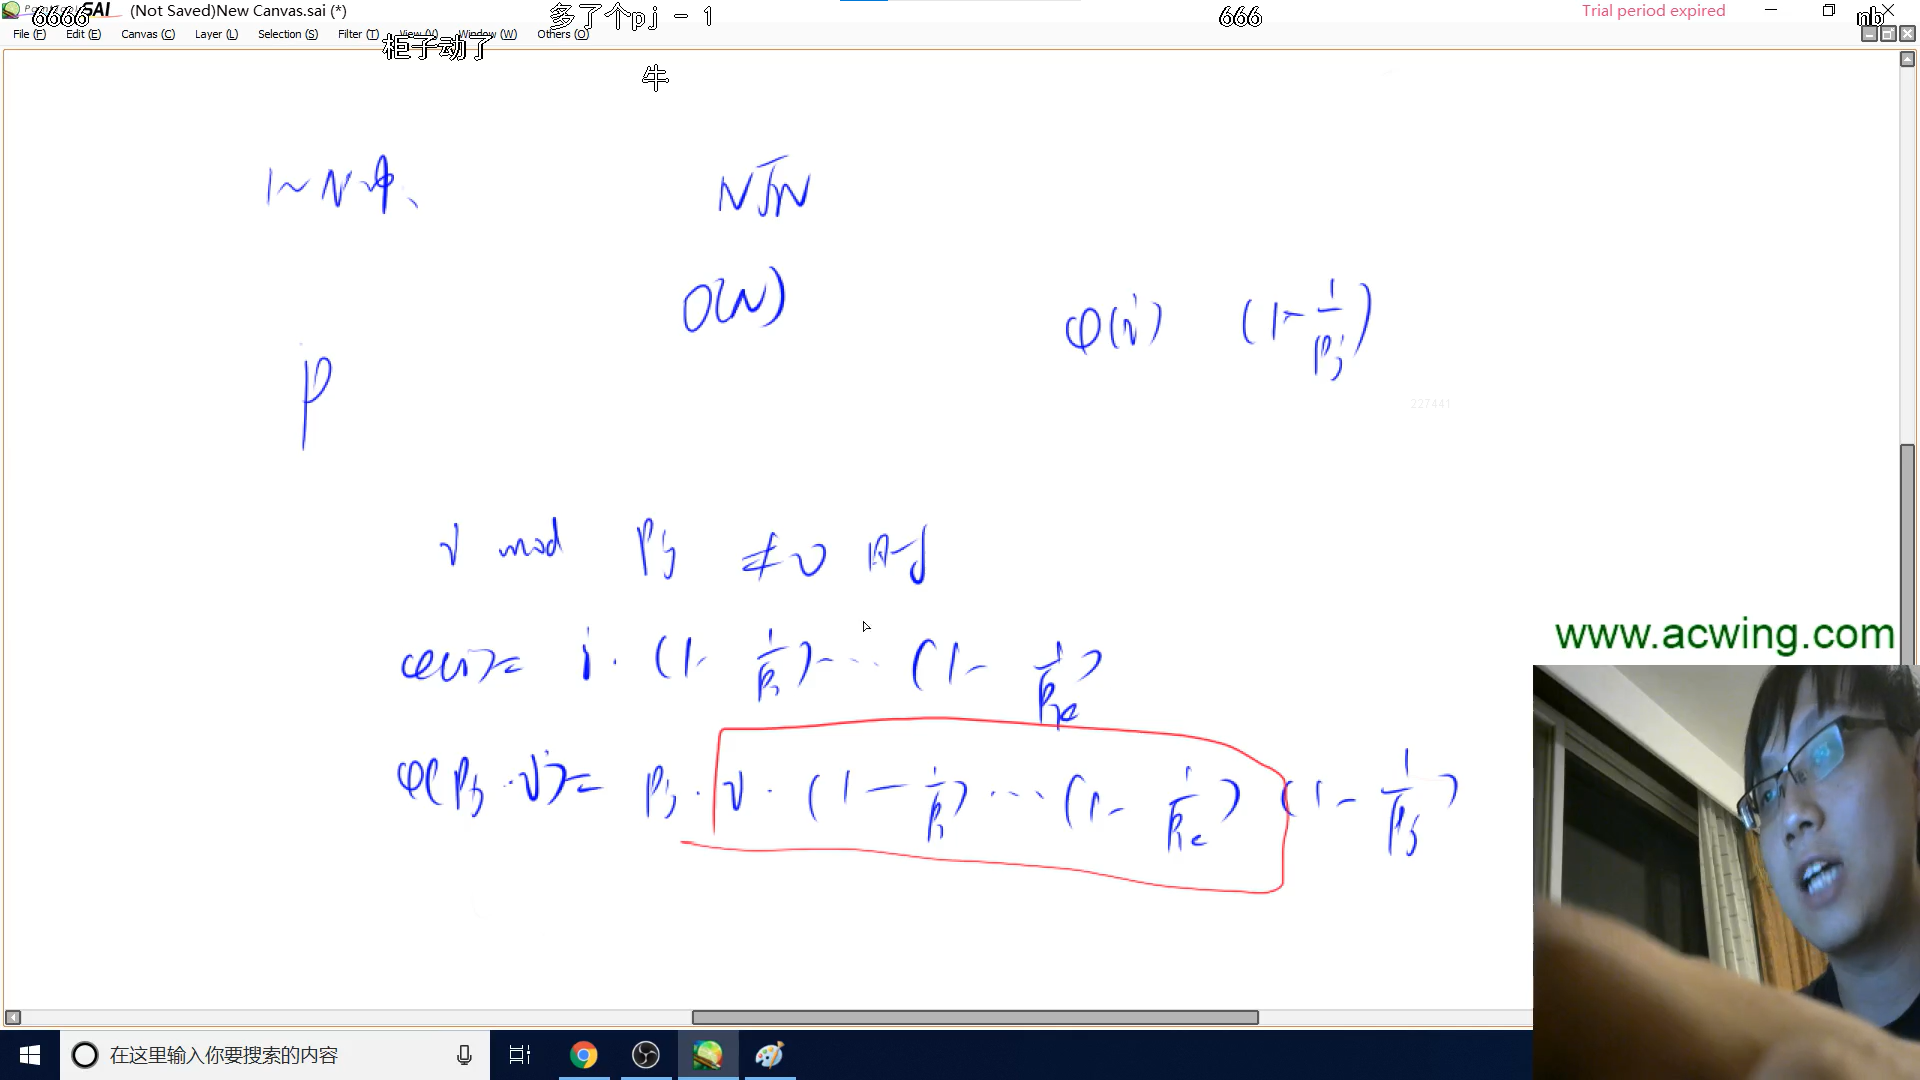 6666 SAI (Not Saved)New Canvas.sai (*) 多了个pj - 1 666 Trial period expired nb
File (F) Edit (E) Canvas (C) Layer (L) Selection (S) Filter (T) View (V) Window (W) Others (O)
柜子动了
牛
1~N中、 N√N
O(N)
φ(i) (1-1/Pj)
P
227441
i mod Pj ≠0 时
φ(i)= i·(1-1/P1)…(1-1/Pk)
φ(Pj·i)= Pj·i·(1-1/P1)…(1-1/Pk)(1-1/Pj)
www.acwing.com
在这里输入你要搜索的内容